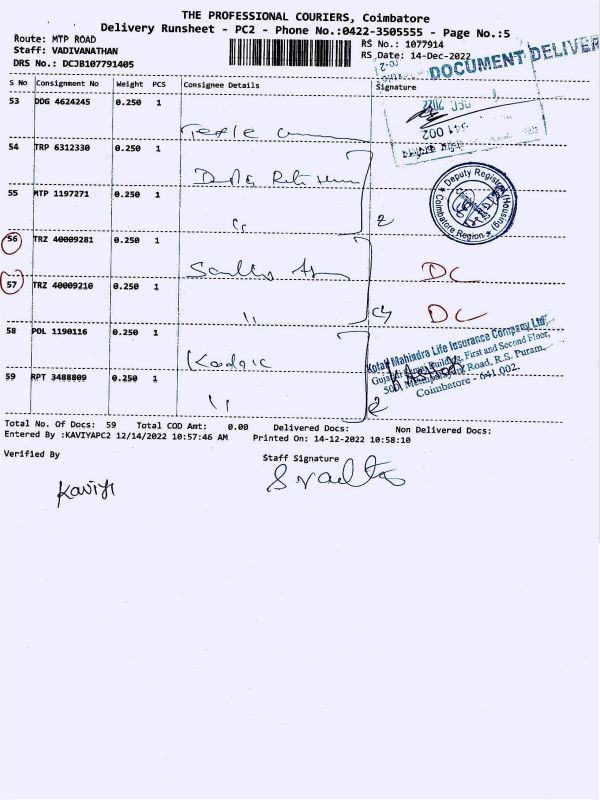 THE PROFESSIONAL COURIERS, Coimbatore
Delivery Runsheet - PC2 - Phone No.:0422-3505555 - Page No.:5
Route: MTP ROAD
Staff: VADIVANATHAN
DRS No.: DCJB107791405
RS No.: 1077914
RS Date: 14-Dec-2022
DOCUMENT DELIVER
S No Consignment No Weight PCS Consignee Details Signature
DEC 2022
641 002
53 DDG 4624245 0.250 1
54 TRP 6312330 0.250 1
55 MTP 1197271 0.250 1
2
Deputy Registrar (Housing) Coimbatore Region
56 TRZ 40009281 0.250 1
DC
57 TRZ 40009210 0.250 1
DC
58 POL 1190116 0.250 1
Kotak Mahindra Life Insurance Company Ltd.
Building, First and Second Floor,
Road, R.S. Puram,
Coimbatore - 641 002.
59 RPT 3488809 0.250 1
2
Total No. Of Docs: 59 Total COD Amt: 0.00 Delivered Docs: Non Delivered Docs:
Entered By :KAVIYAPC2 12/14/2022 10:57:46 AM Printed On: 14-12-2022 10:58:10
Verified By Staff Signature